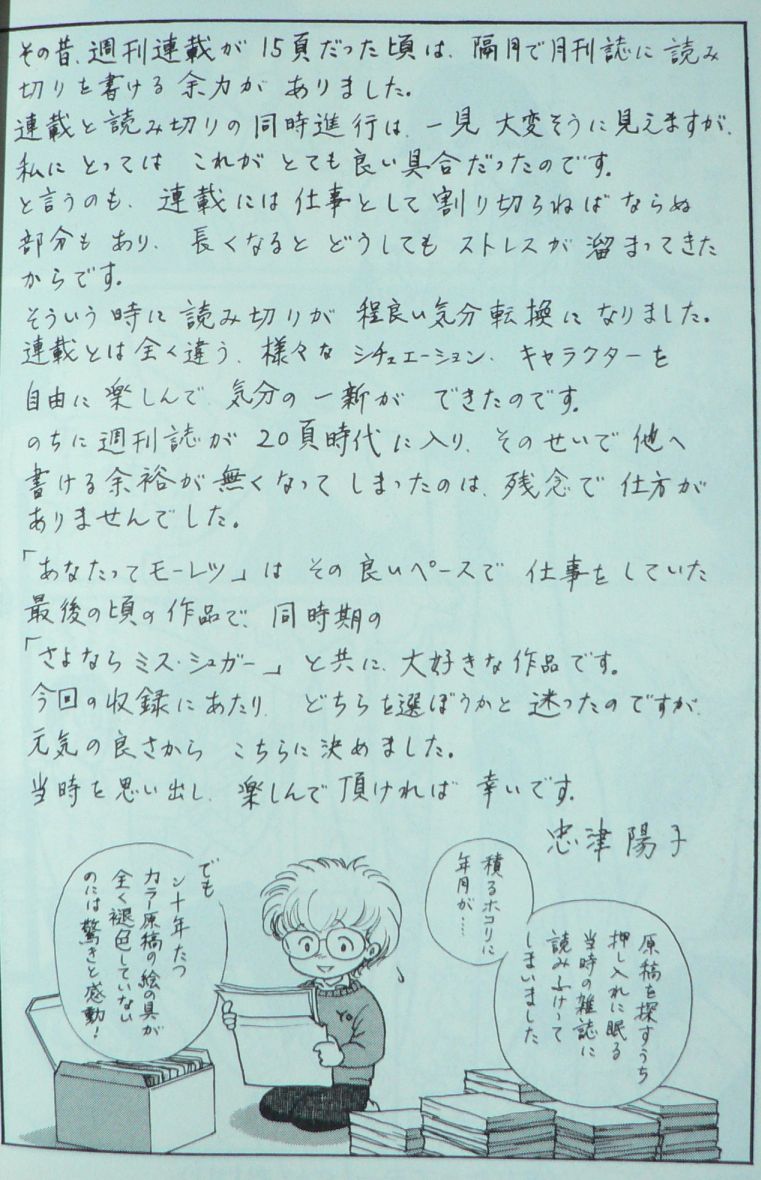 その昔、週刊連載が15頁だった頃は、隔月で月刊誌に読み
切りを書ける余力がありました。
連載と読み切りの同時進行は、一見大変そうに見えますが、
私にとってはこれがとても良い具合だったのです。
と言うのも、連載には仕事として割り切らねばならぬ
部分もあり、長くなるとどうしてもストレスが溜まってきた
からです。
そういう時に読み切りが程良い気分転換になりました。
連載とは全く違う、様々なシチュエーション、キャラクターを
自由に楽しんで気分の一新ができたのです。
のちに週刊誌が20頁時代に入り、そのせいで他へ
書ける余裕が無くなってしまったのは、残念で仕方が
ありませんでした。
「あなたってモーレツ」はその良いペースで仕事をしていた
最後の頃の作品で、同時期の
「さよならミス・シュガー」と共に、大好きな作品です。
今回の収録にあたり、どちらを選ぼうかと迷ったのですが、
元気の良さからこちらに決めました。
当時を思い出し、楽しんで頂ければ幸いです。
忠津陽子
原稿を探すうち
押し入れに眠る
当時の雑誌に
読みふけって
しまいました
積るホコリに
年月が……
でも
ン十年たつ
カラー原稿の絵の具が
全く褪色していない
のには驚きと感動!
Yo.